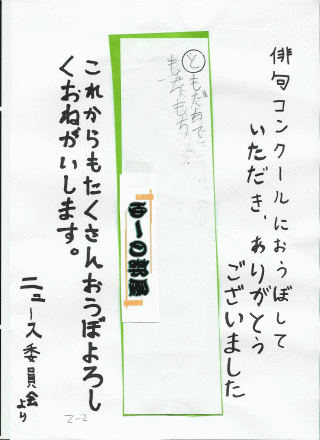 俳句コンクールにおうぼして
いただき、ありがとう
ございました
ともだちで
もちもち
ゆーの部屋
これからもたくさんおうぼよろし
くおねがいします。
ニュース委員会より
2-2